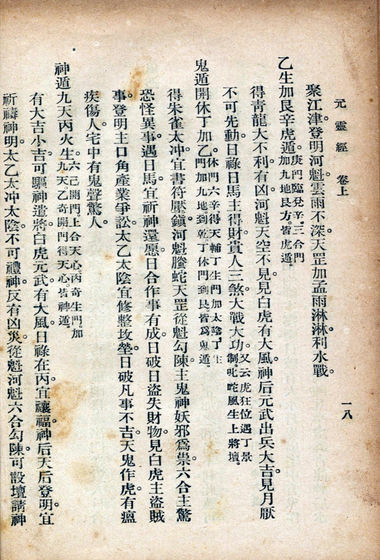 元靈經 卷上
一八
聚江津。登明河魁。雲雨不深。天罡加孟雨淋淋。利水戰。
乙生加艮辛虎遁。庚門臨兌辛三合門加九地艮方。皆虎遁。
得青龍大不利。有凶河魁天空不見。見白虎有大風。神后元武出兵大吉。見月厭
不可先動。日祿日馬主得財貴人。三煞大戰大功。又云虎狂位遇丁景制。咜蛇風生上將壇。
鬼遁開休丁加乙。
得朱雀太冲宜書符壓鎮。河魁螣蛇天罡從魁勾陳主鬼神妖邪爲祟。六合主驚
恐怪異事。遇日馬宜祈神還愿。日合作事有成。日破日盜失財物。見白虎主盜賊
事。登明主口角產業爭訟。太乙太陰宜修整攻壘。日破凡事不吉。天鬼作虎有瘟
疾傷人。宅中有鬼聲驚人。
神遁九天丙火生。六己開門上合天心丙奇生門加九天乙奇開門得天心皆神遁。
有大吉小吉可驅神遣將。白虎元武有大風。日祿在內宜禳福神。后天后登明宜
祈禱神明。太乙太冲太陰不可禮神。反有凶災。從魁河魁六合勾陳可設壇請神